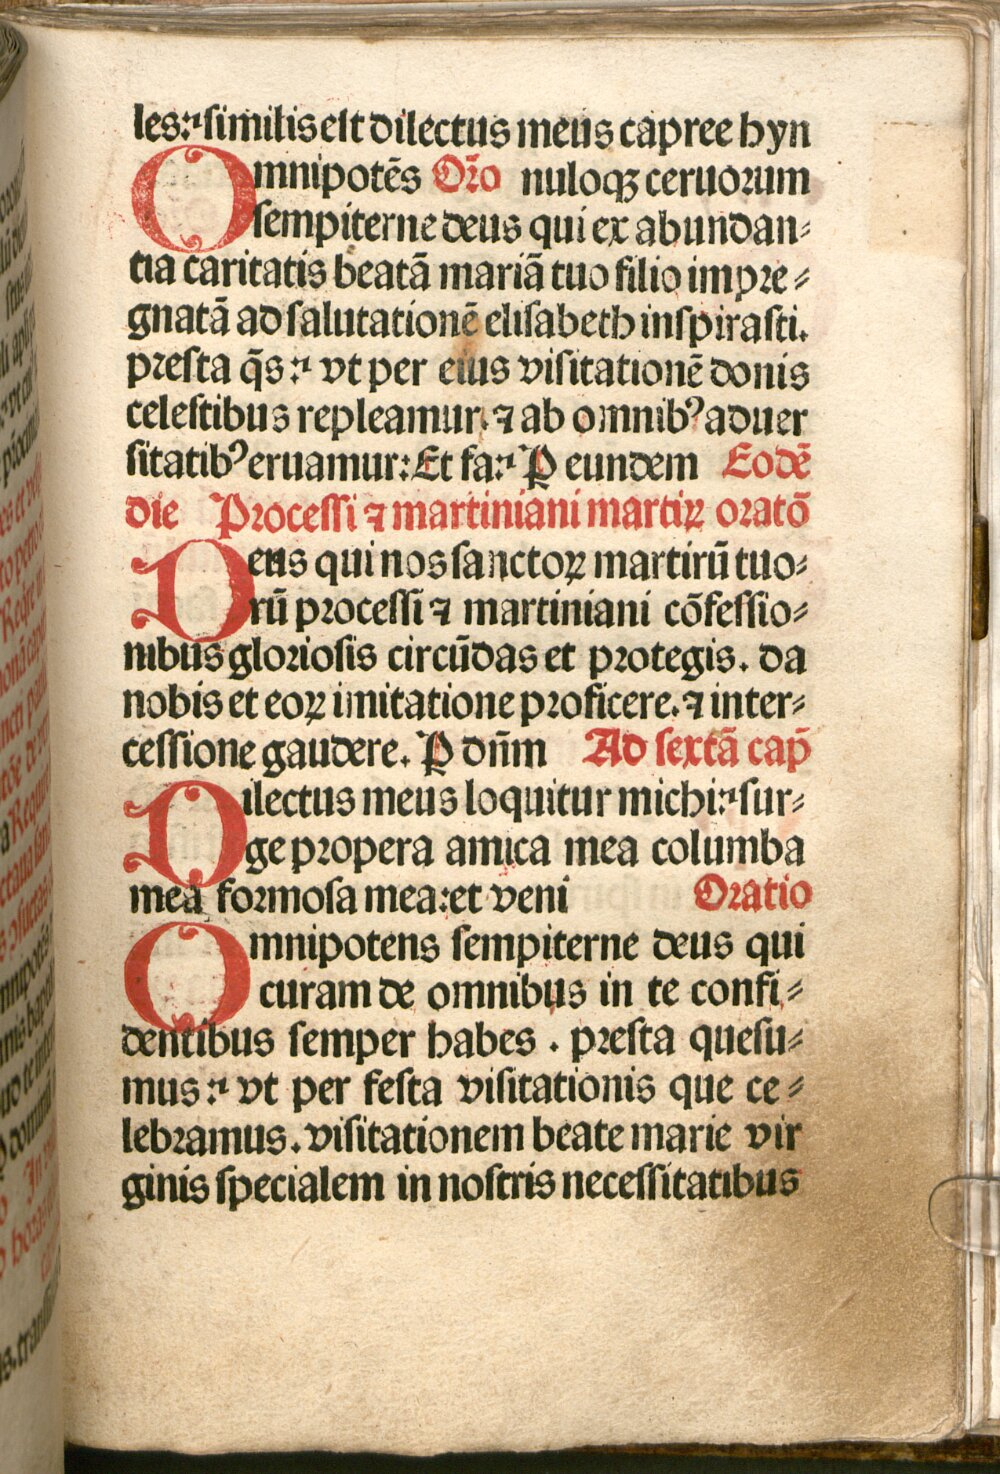 les: similis est dilectus meus capree hyn
Omnipotẽs Or̃o nuloqꝫ ceruorum
sempiterne deus qui ex abundan⸗
tia caritatis beatã mariã tuo filio impre⸗
gnatã ad salutationẽ elisabeth inspirasti.
presta q̃s: vt per eius visitationẽ donis
celestibus repleamur. ⁊ ab omnibꝰ aduer
sitatibꝰ eruamur: Et fa: P eundem Eodẽ
die Processi ⁊ martiniani martiꝝ oratõ
Deus qui nos sanctoꝝ martirũ tuo⸗
rũ processi ⁊ martiniani cõfessio⸗
nibus gloriosis circũdas et protegis. da
nobis et eoꝝ imitatione proficere. ⁊ inter⸗
cessione gaudere. P dñm Ad sextã cap̃
Dilectus meus loquitur michi: sur⸗
ge propera amica mea columba
mea formosa mea: et veni Oratio
Omnipotens sempiterne deus qui
curam de omnibus in te confi⸗
dentibus semper habes . presta quesu⸗
mus: vt per festa visitationis que ce⸗
lebramus. visitationem beate marie vir
ginis specialem in nostris necessitatibus